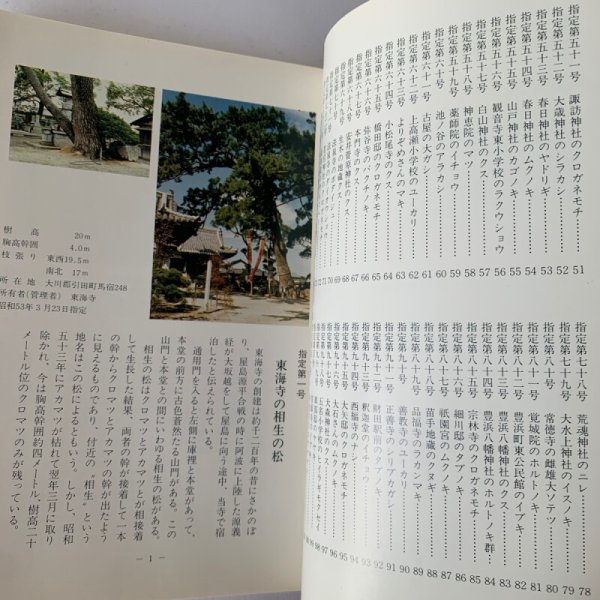 樹高 20m
胸高幹囲 4.0m
枝張り 東西19.5m
南北 17m
所在地 大川郡引田町馬宿248
所有者(管理者) 東海寺
昭和53年3月23日指定
指定第一号
東海寺の相生の松
東海寺の創建は約千二百年の昔にさかのぼ
り、屋島源平合戦の時に阿波に上陸した源義
経が大坂越をして屋島に向う途中、当寺で宿
泊したと伝えられている。
通用門を入ると左側に庫裡と本堂があって、
本堂の前方に古色蒼然たる山門がある。この
山門と本堂との間にいわゆる相生の松がある。
相生の松はクロマツとアカマツとが相接着
して生長した結果、両者の幹が接着して一本
の幹からクロマツとアカマツとの幹が出たよう
に見えるものであり、付近の“相生”という
地名はこの松によるともいう。しかし、昭和
五十三年にアカマツが枯れて翌年三月に取り
除かれ、今は胸高幹囲約四メートル、樹高二十
メートル位のクロマツのみが残っている。
－1－
指定第五十一号 諏訪神社のクロガネモチ 51
指定第五十二号 大蔵神社のシラカシ 52
指定第五十三号 春日神社のヤドリギ 53
指定第五十四号 春日神社のムクノキ 54
指定第五十五号 山戸神社のカゴノキ 55
指定第五十六号 観音寺東小学校のラクウショウ 56
指定第五十七号 白山神社のクス 57
指定第五十八号 神恵院のマツ 58
指定第五十九号 薬師院のイチョウ 59
指定第六十号 池ノ谷のアラカシ 60
指定第六十一号 古屋の大ガシ 61
指定第六十二号 上高瀬小学校のユーカリ 62
指定第六十三号 よりぞめさんのマキ 63
指定第六十四号 小松尾寺のクス 64
指定第六十五号 橋田邸のクロガネモチ 65
指定第六十六号 弥谷寺のバクチノキ 66
指定第六十七号 本門寺のクス 67
指定第六十八号
指定第七十八号 荒魂神社のニレ 78
指定第七十九号 大水上神社のイスノキ 79
指定第八十号 常徳寺の雌雄大ソテツ 80
指定第八十一号 覚城院のホルトノキ 81
指定第八十二号 豊浜町東公民館のイブキ 82
指定第八十三号 豊浜八幡神社のクス 83
指定第八十四号 豊浜八幡神社のホルトノキ群 84
指定第八十五号 宗林寺のクロガネモチ 85
指定第八十六号 細川邸のタブノキ 86
指定第八十七号 祇園宮のムクノキ 87
指定第八十八号 苗手地蔵のクヌギ 88
指定第八十九号 品福寺のラカンマキ 89
指定第九十号 善教寺のユーカリ 90
指定第九十一号 正善寺のシリブカガシ 91
指定第九十二号
指定第九十三号 釈王寺のイチョウ 93
指定第九十四号 西福寺のナシ 94